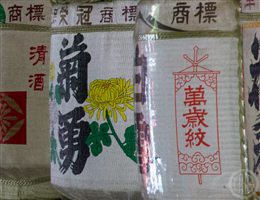 商標
清酒
榮冠 商標
菊勇
商標
萬歳紋